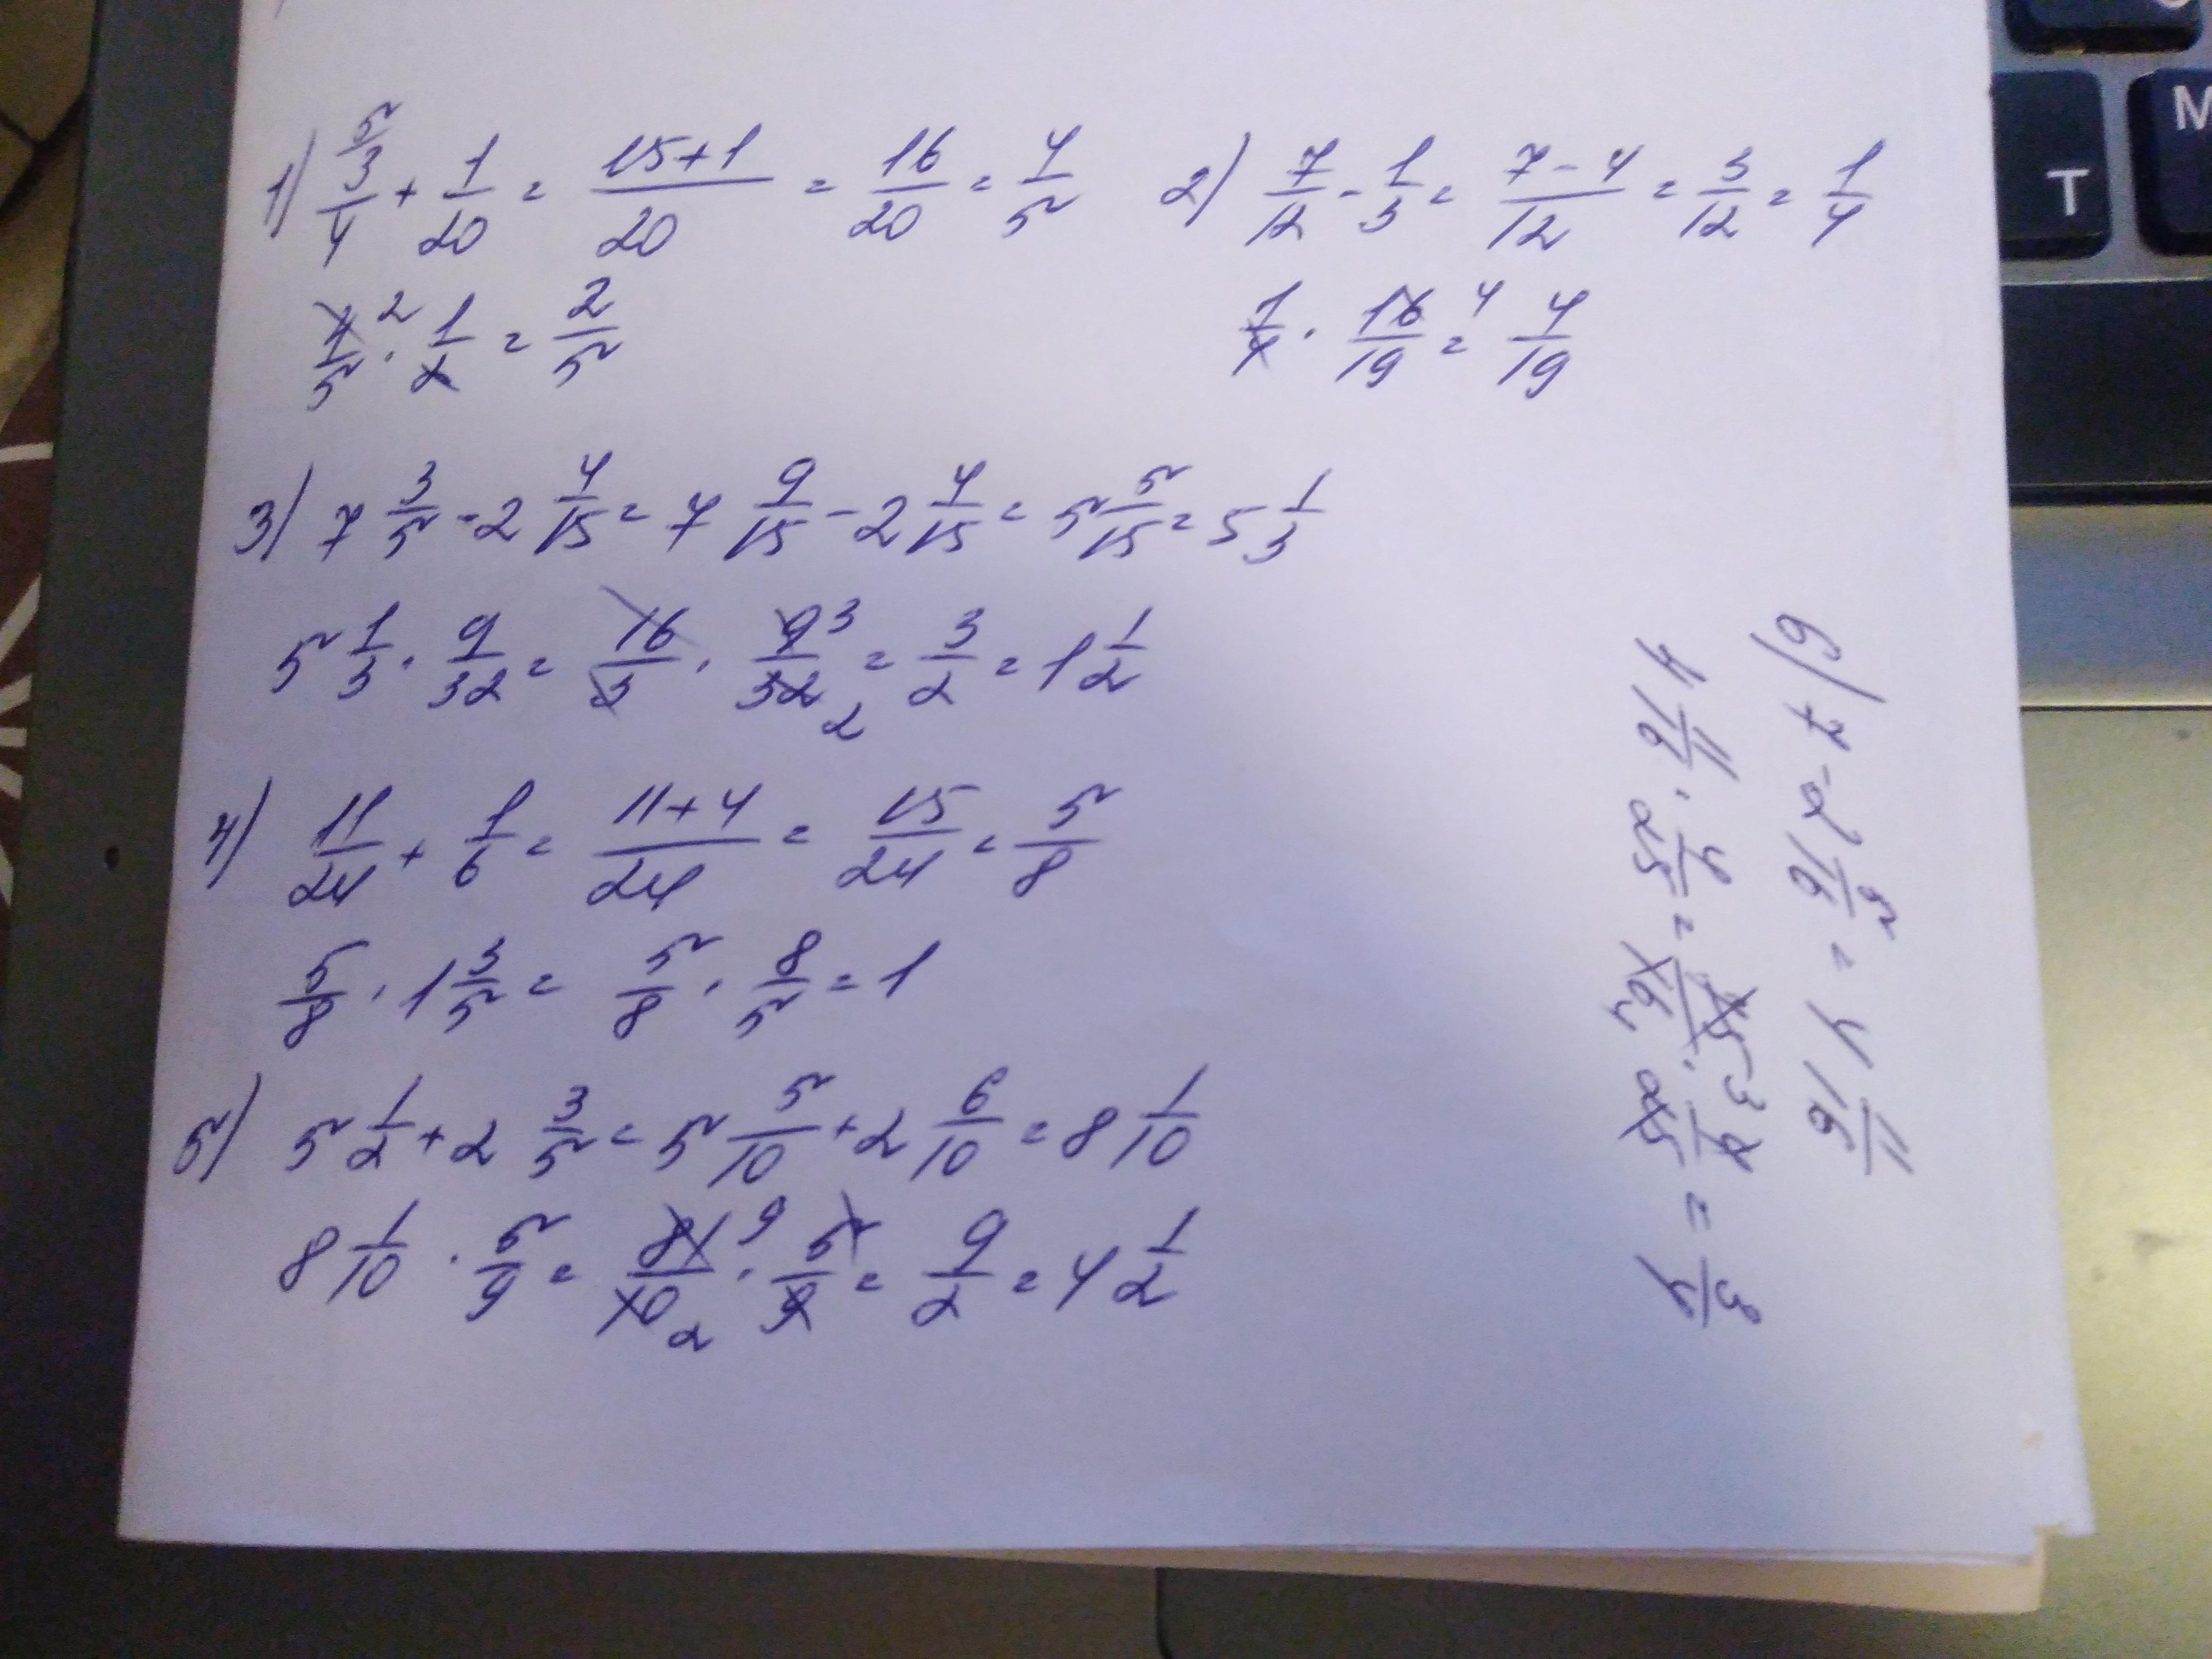 1) 3/4 + 1/20 = (15+1)/20 = 16/20 = 4/5
4/5 · 1/2 = 2/5
2) 7/12 - 1/3 = (7-4)/12 = 3/12 = 1/4
1/4 · 16/19 = 4/19
3) 7 3/5 - 2 4/15 = 7 9/15 - 2 4/15 = 5 5/15 = 5 1/3
5 1/3 · 9/32 = 16/3 · 9/32 = 3/2 = 1 1/2
4) 11/24 + 1/6 = (11+4)/24 = 15/24 = 5/8
5/8 · 1 3/5 = 5/8 · 8/5 = 1
5) 5 1/2 + 2 3/5 = 5 5/10 + 2 6/10 = 8 1/10
8 1/10 · 5/9 = 81/10 · 5/9 = 9/2 = 4 1/2
6) 7 - 2 5/16 = 4 11/16
4 11/16 · 4/25 = 75/16 · 4/25 = 3/4
T
M